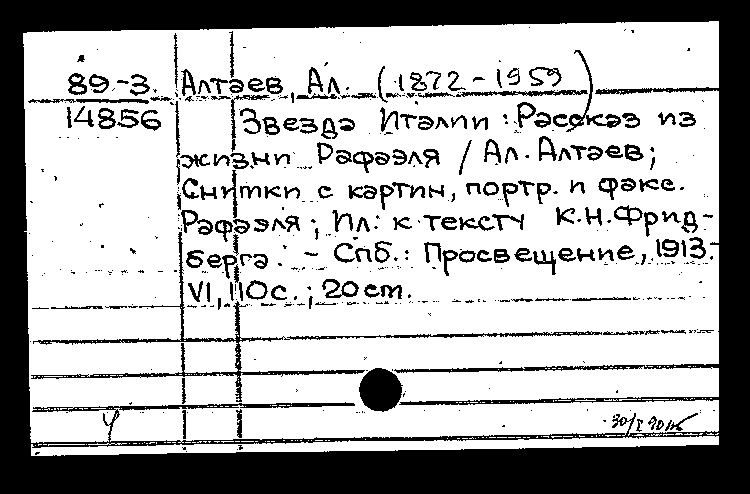 89-3. Алтаев, Ал. (1872-1959)
14856 Звезда Италии: Рассказ из
жизни Рафаэля / Ал. Алтаев;
Снимки с картин, портр. и факс.
Рафаэля; Ил. к тексту К.Н. Фрид-
берга. - Спб.: Просвещение, 1913.-
VI, 110с.; 20 cm.
Ч